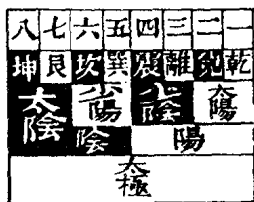 八七六五四三二一
坤艮坎巽震離兌乾
太陰 少陽 少陰 太陽
陰 陽
太極